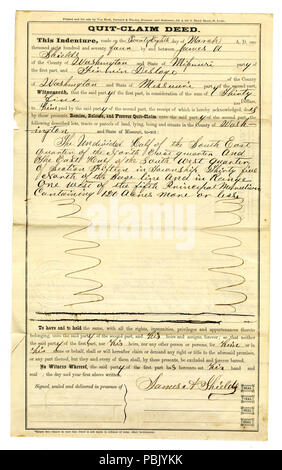 QUIT-CLAIM DEED.
This Indenture, made on the Twenty Eighth day of March A. D. one
thousand eight hundred and seventy by and between James A
Shields
of the County of Washington and State of Missouri party of
the first part, and Firmin Desloge
of the County
of Washington and State of Missouri party of the second part,
Witnesseth, that the said party of the first part, in consideration of the sum of Thirty
Five DOLLARS, to
him paid by the said party of the second part, the receipt of which is hereby acknowledged, does
by these presents, Remise, Release, and Forever Quit-Claim unto the said party of the second part, the
following described lots, tracts or parcels of land, lying, being and situate in the County of Wash
ington and State of Missouri, to-wit:
The Undivided Half of the South East
quarter of the North West quarter And
The East Half of the South West quarter
of Section Fifteen in Township Thirty five
North of the Base line And in Range
One West of the fifth Principal Meridian
Containing 120 Acres more or less
To have and to hold the same, with all the rights, immunities, privileges and appurtenances thereto
belonging, unto the said party of the second part, and his heirs and assigns, forever; so that neither
the said party of the first part, nor his heirs, nor any other person or persons, for him or in
his name or behalf, shall or will hereafter claim or demand any right or title to the aforesaid premises,
or any part thereof, but they and every of them shall, by these presents, be excluded and forever barred.
In Witness Whereof, the said party of the first part has hereunto set his hand and
seal, the day and year first above written.
Signed, sealed and delivered in presence of
James A Shields
SEAL
SEAL
SEAL
SEAL
alamy
Image ID: PBJYKK
www.alamy.com